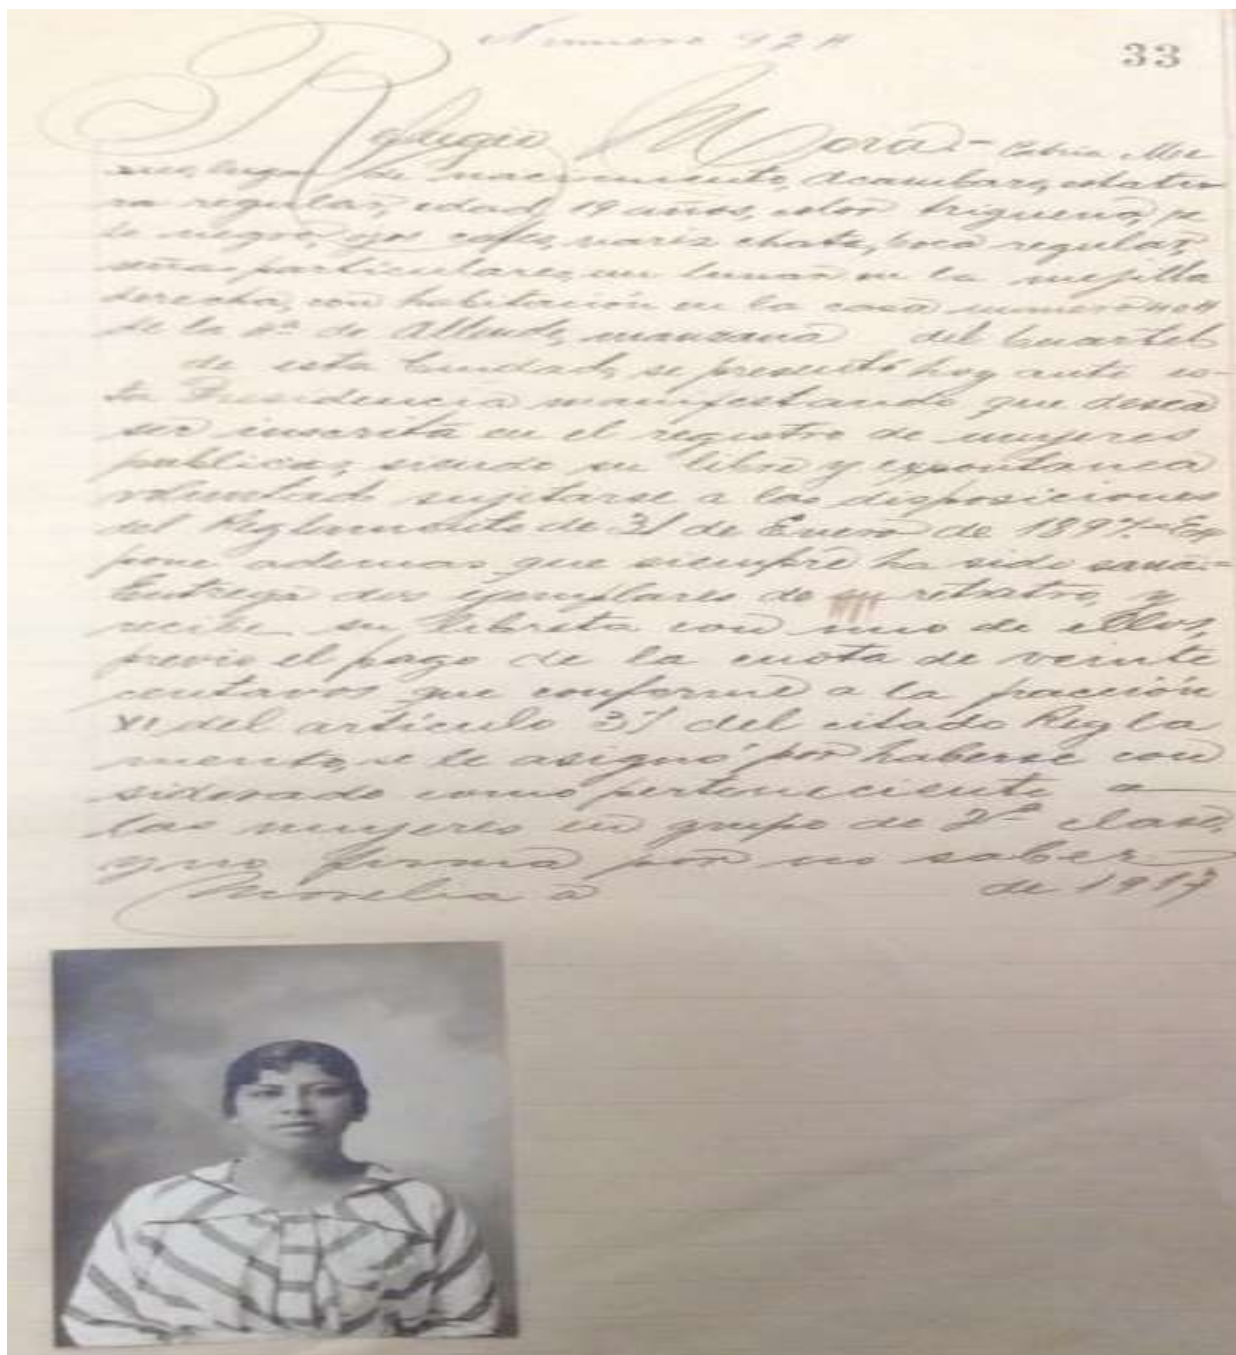 33
Refugio Mora.- Patria Mé
xico, lugar de nacimiento, Acambaro, estatu
ra regular, edad, 19 años, color trigueño, pe
lo negro, ojos cafés, nariz chata, boca regular,
señas particulares, un lunar en la mejilla
derecha, con habitación en la casa numero
de la 4ª de Allende, manzana del Cuartel
de esta Ciudad, se presentó hoy ante es-
ta Presidencia manifestando que desea
ser inscrita en el registro de mujeres
publicas, siendo su libre y expontanea
voluntad sujetarse a las disposiciones
del Reglamento de 31 de Enero de 1897.- Ex
pone ademas que siempre ha sido sana.-
Entrega dos ejemplares de su retrato, y
recibe su libreta con uno de ellos,
previo el pago de la cuota de veinte
centavos que conforme a la fracción
VI del artículo 31 del citado Regla
mento, se le asignó por haberse con
siderado como perteneciente a
las mujeres en grupo de 2ª clase,
y no firma por no saber.
Morelia a de 1917